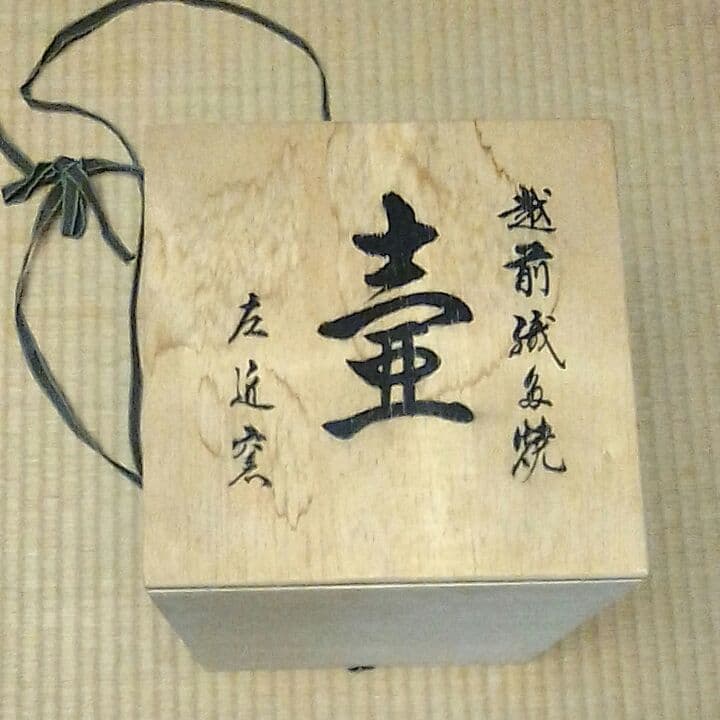 越前織田焼
壷
左近窯